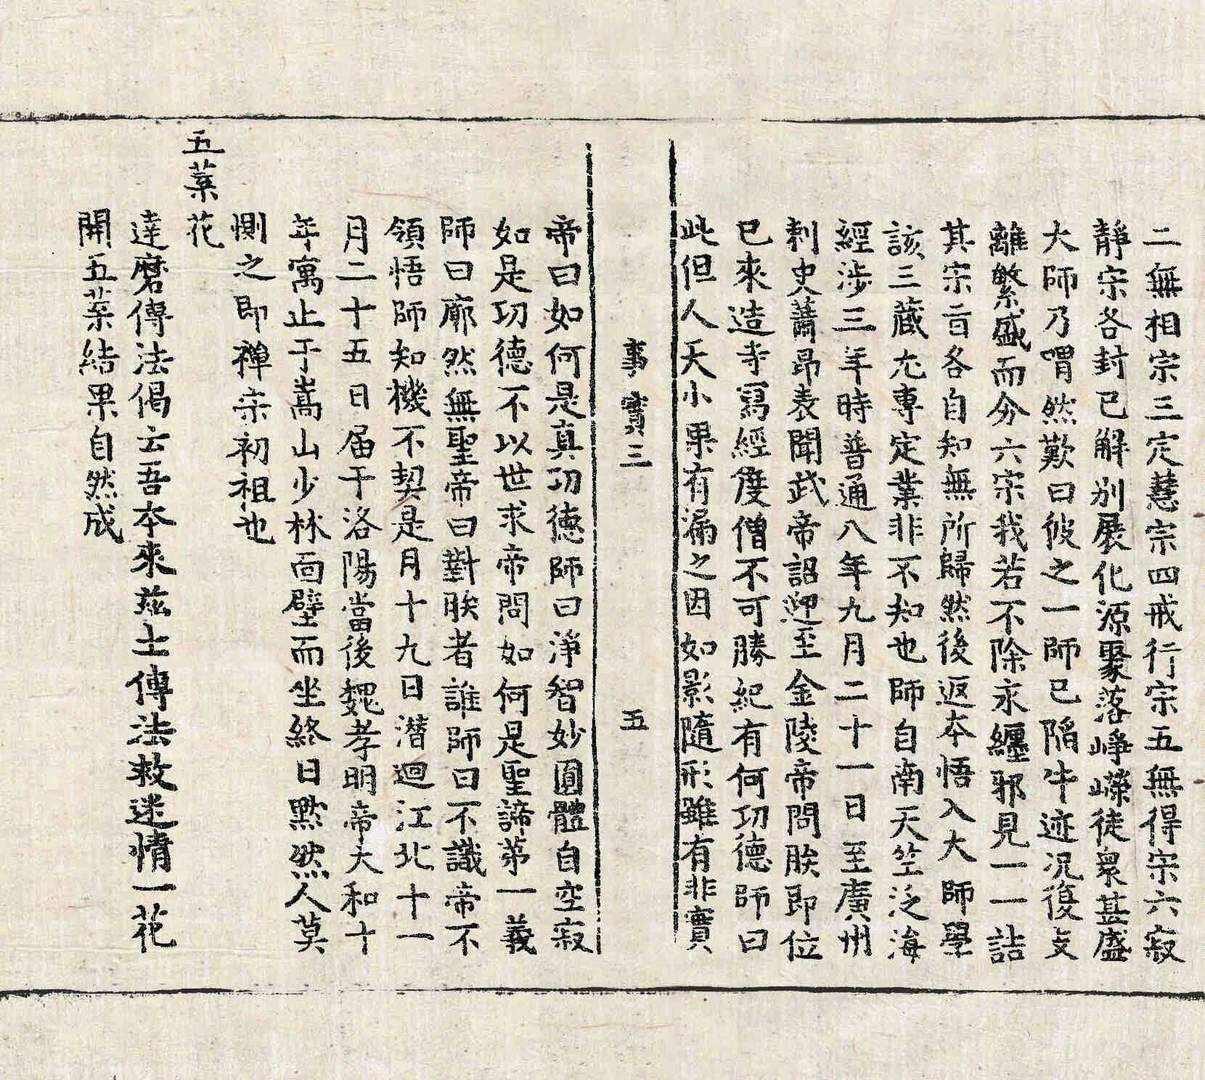 二無相宗三定慧宗四戒行宗五無得宗六寂
靜宗各封已解別展化源聚落崢嶸徒衆甚盛
大師乃喟然歎曰彼之一師已陷牛迹況復支
離繁盛而分六宗我若不除永纏邪見一一詰
其宗旨各自知無所歸然後返本悟入大師學
該三藏尢專定業非不知也師自南天竺泛海
經涉三年時普通八年九月二十一日至廣州
刺史蕭昂表聞武帝詔迎至金陵帝問朕即位
已來造寺寫經度僧不可勝紀有何功德師曰
此但人天小果有漏之因如影隨形雖有非實
事實三　五
帝曰如何是真功德師曰淨智妙圓體自空寂
如是功德不以世求帝問如何是聖諦苐一義
師曰廓然無聖帝曰對朕者誰師曰不識帝不
領悟師知機不契是月十九日潛迴江北十一
月二十五日届于洛陽當後魏孝明帝大和十
年寓止于嵩山少林面壁而坐終日默然人莫
惻之即禪宗初祖也
五葉花
達磨傳法偈云吾本來茲土傳法救迷情一花
開五葉結果自然成